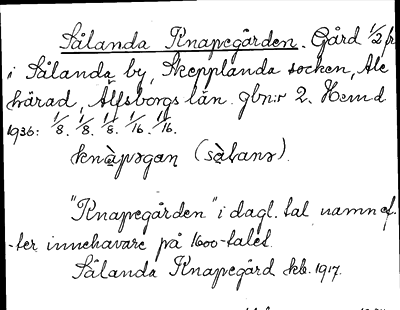 Sålanda Knapegården. Gård 1/2 fr
i Sålanda by, Skepplanda socken, Ale
härad, Älfsborgs län. gbn:r 2. Hemd
1936: 1/8. 1/8. 1/8. 1/16. 1/16.
knàpəgan (sàlanə).
"Knapegården" i dagl. tal namn ef-
-ter innehavare på 1600-talet.
Sålanda Knapegård kb. 1917.